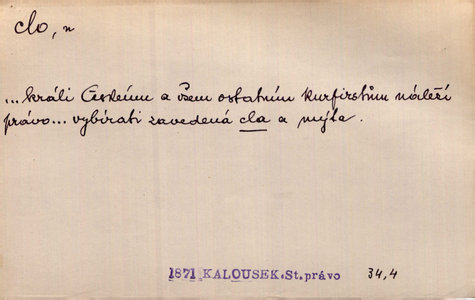 clo, n
...králi Českému a všem ostatním kurfirstům náleží
právo... vybírati zavedená cla a mýta.
1871 KALOUSEK.St.právo 34,4